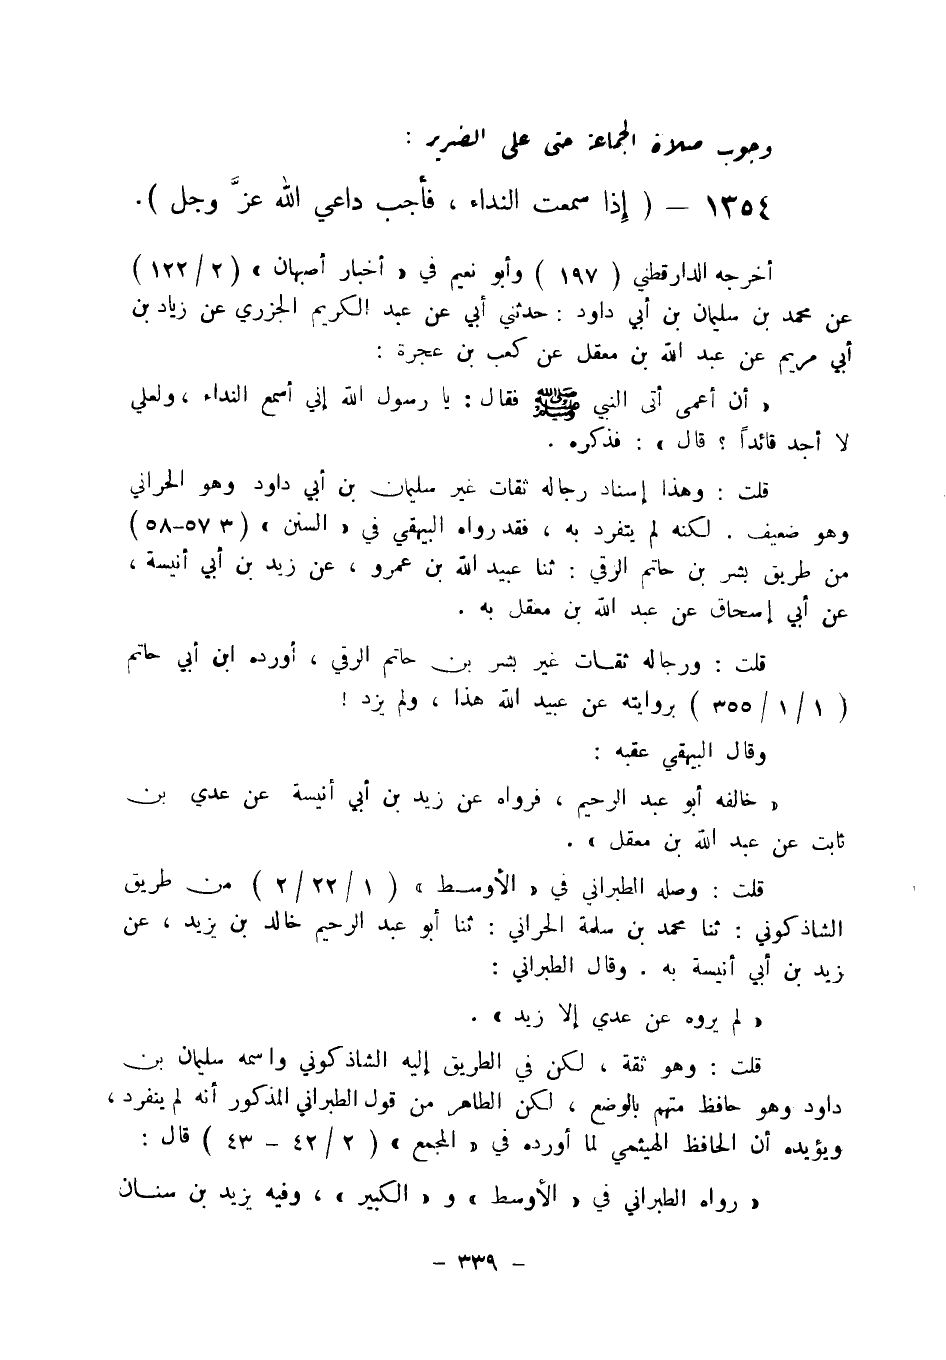 وجوب صلاة الجماعة حتى على الضرير :
١٣٥٤ – ( إذا سمعت النداء ، فأجب داعي الله عزَّ وجل ).
أخرجه الدارقطني ( ١٩٧ ) وأبو نعيم في « أخبار أصبهان » (٢ / ١٢٢ )
عن محمد بن سليمان بن أبي داود : حدثني أبي عن عبد الكريم الجزري عن زياد بن
أبي مريم عن عبد الله بن معقل عن كعب بن عجرة :
« أن أعمى أتى النبي ﷺ فقال : يا رسول الله إني أسمع النداء ، ولعلي
لا أجد قائداً ؟ قال » : فذكره .
قلت : وهذا إسناد رجاله ثقات غير سليمان بن أبي داود وهو الحراني
وهو ضعيف . لكنه لم يتفرد به ، فقد رواه البيهقي في « السنن » (٣ ٥٧–٥٨)
من طريق بشر بن حاتم الرقي : ثنا عبيد الله بن عمرو ، عن زيد بن أبي أنيسة ،
عن أبي إسحاق عن عبد الله بن معقل به .
قلت : ورجاله ثقات غير بشر بن حاتم الرقي ، أورده ابن أبي حاتم
( ١ / ١ / ٣٥٥ ) بروايته عن عبيد الله هذا ، ولم يزد !
وقال البيهقي عقبه :
« خالفه أبو عبد الرحيم ، فرواه عن زيد بن أبي أنيسة عن عدي بن
ثابت عن عبد الله بن معقل » .
قلت : وصله الطبراني في « الأوسط » ( ١ / ٢٢ / ٢ ) من طريق
الشاذكوني : ثنا محمد بن سلمة الحراني : ثنا أبو عبد الرحيم خالد بن يزيد ، عن
زيد بن أبي أنيسة به . وقال الطبراني :
« لم يروه عن عدي إلا زيد » .
قلت : وهو ثقة ، لكن في الطريق إليه الشاذكوني واسمه سليمان بن
داود وهو حافظ متهم بالوضع ، لكن الظاهر من قول الطبراني المذكور أنه لم ينفرد ،
ويؤيده أن الحافظ الهيثمي لما أورده في « المجمع » ( ٢ / ٤٢ – ٤٣ ) قال :
« رواه الطبراني في « الأوسط » و « الكبير » ، وفيه يزيد بن سنان
– ٣٣٩ –